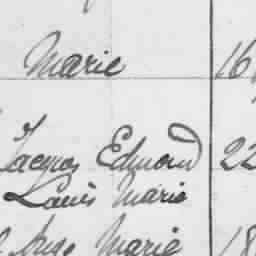 Marie 16
Jacques Edmond 22
Louis Marie
Marie 18